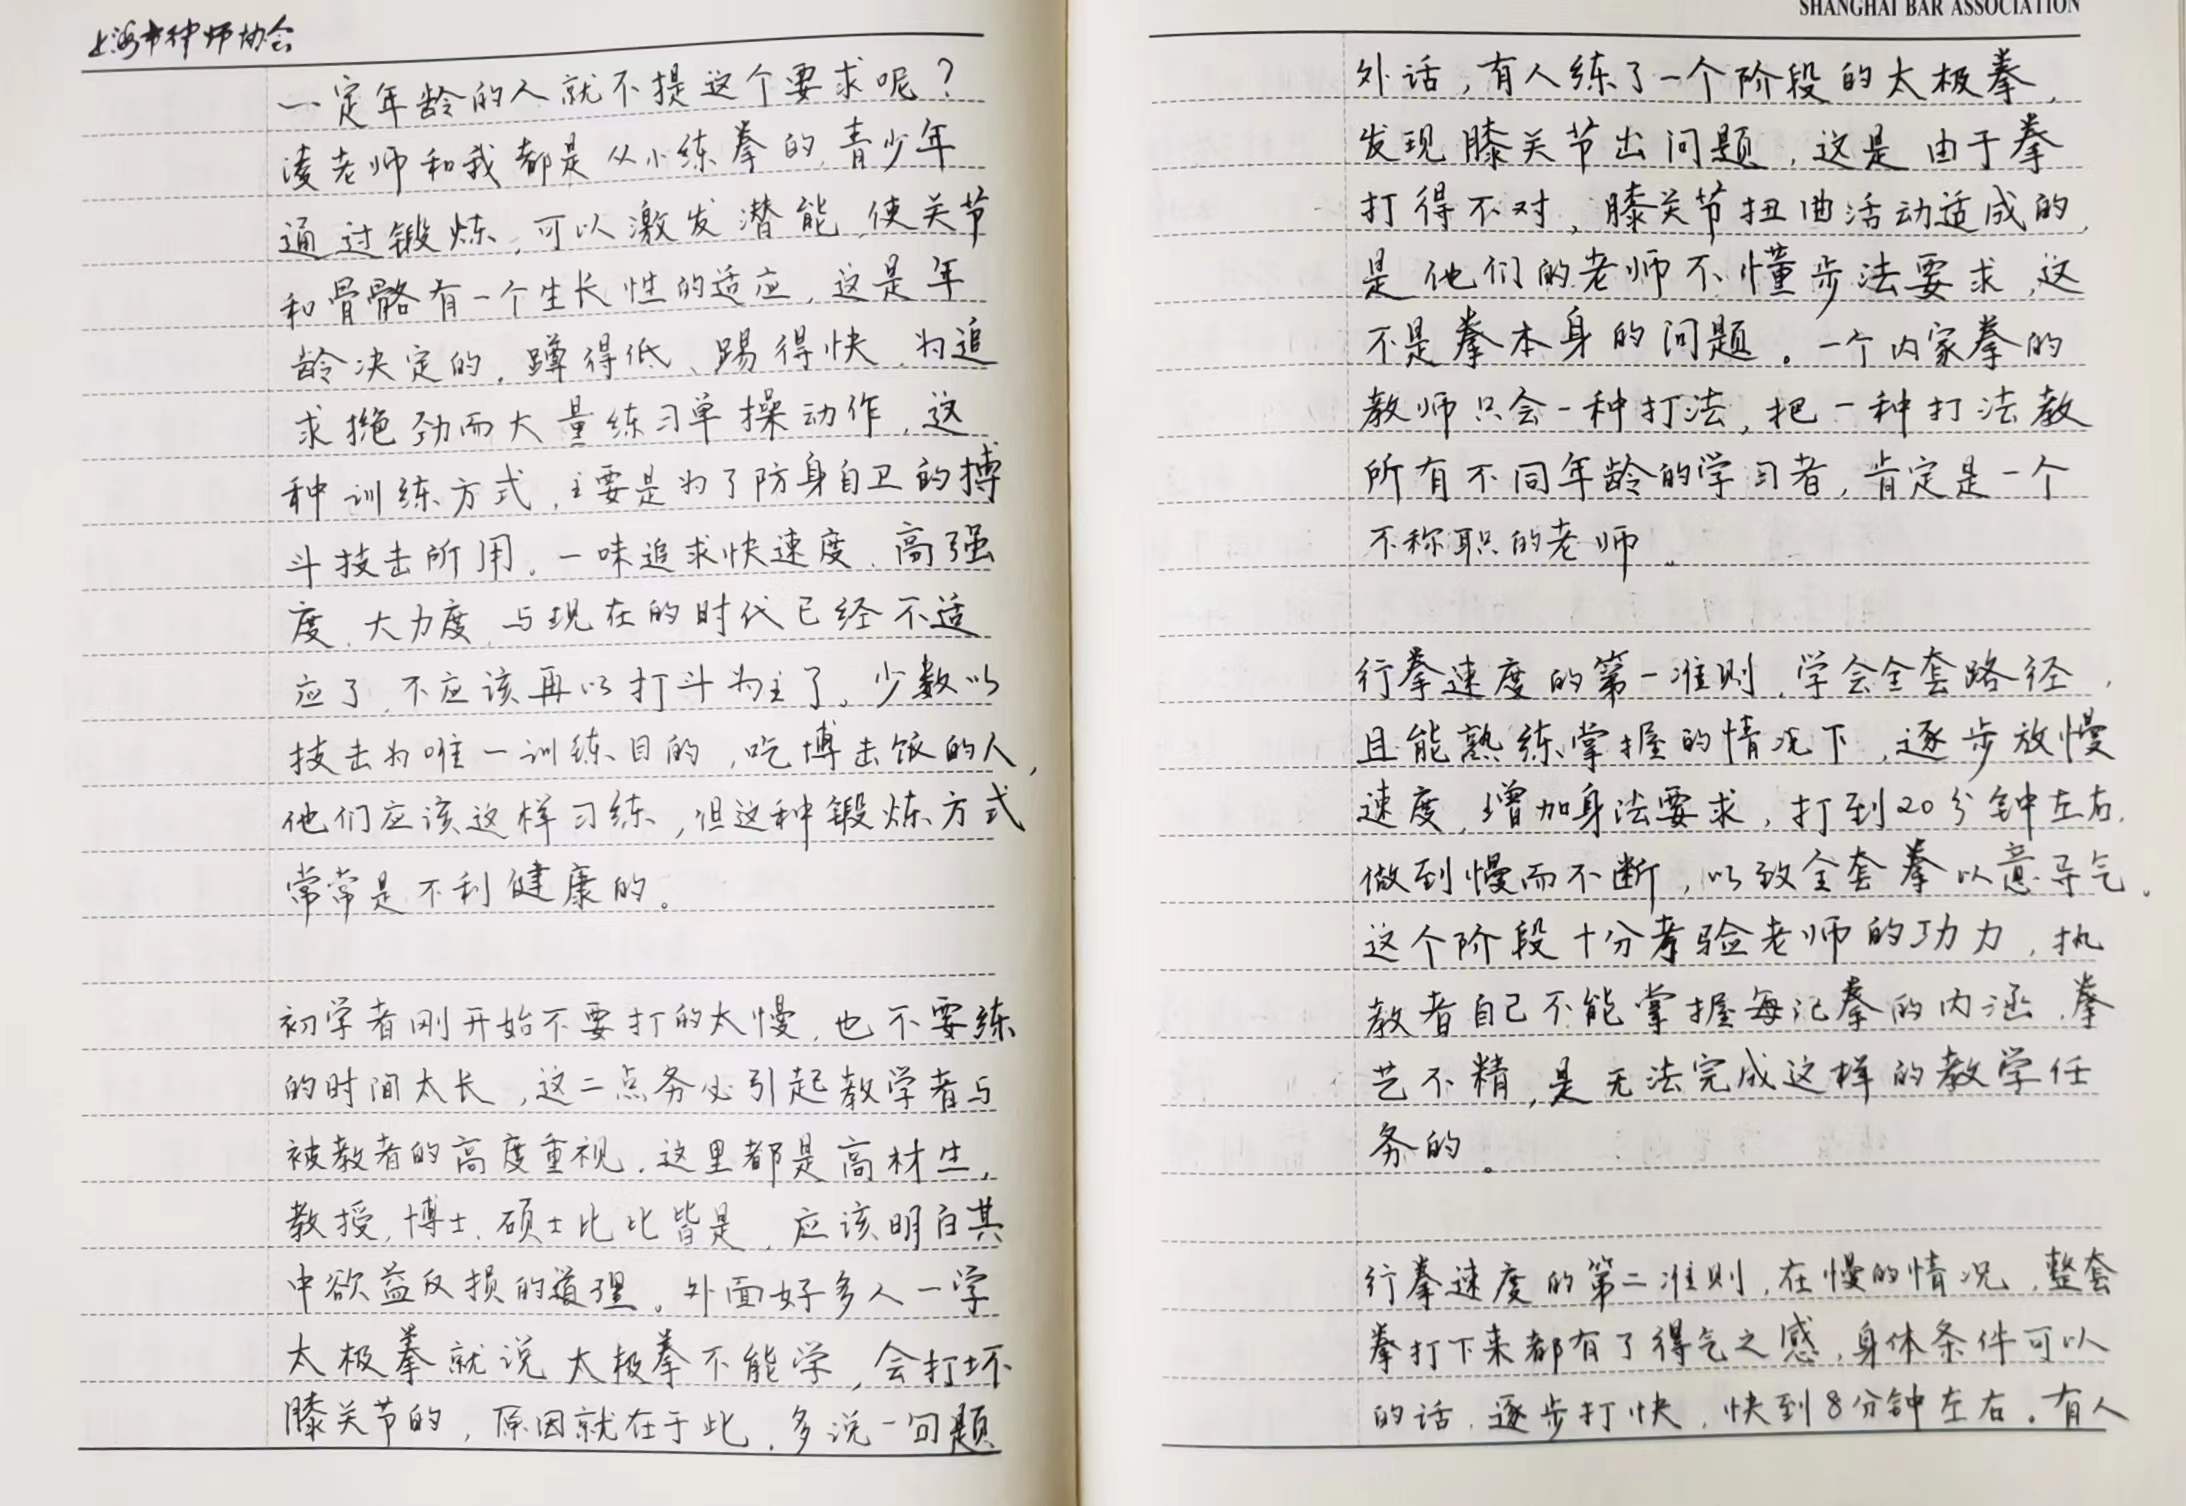 上海市律师协会
一定年龄的人就不提这个要求呢？
凌老师和我都是从小练拳的，青少年
通过锻炼，可以激发潜能，使关节
和骨骼有一个生长性的适应，这是年
龄决定的，蹲得低、踢得快，为追
求拙劲而大量练习单操动作，这
种训练方式，主要是为了防身自卫的搏
斗技击所用。一味追求快速度、高强
度、大力度，与现在的时代已经不适
应了，不应该再以打斗为主了。少数以
技击为唯一训练目的，吃搏击饭的人，
他们应该这样习练，但这种锻炼方式
常常是不利健康的。
初学者刚开始不要打的太慢，也不要练
的时间太长，这二点务必引起教学者与
被教者的高度重视，这里都是高材生，
教授，博士、硕士比比皆是，应该明白其
中欲益反损的道理。外面好多人一学
太极拳就说太极拳不能学，会打坏
膝关节的，原因就在于此，多说一句题
SHANGHAI BAR ASSOCIATION
外话，有人练了一个阶段的太极拳，
发现膝关节出问题，这是由于拳
打得不对，膝关节扭曲活动造成的，
是他们的老师不懂步法要求，这
不是拳本身的问题。一个内家拳的
教师只会一种打法，把一种打法教
所有不同年龄的学习者，肯定是一个
不称职的老师。
行拳速度的第一准则，学会全套路径，
且能熟练掌握的情况下，逐步放慢
速度，增加身法要求，打到20分钟左右，
做到慢而不断，以致全套拳以意导气。
这个阶段十分考验老师的功力，执
教者自己不能掌握每记拳的内涵，拳
艺不精，是无法完成这样的教学任
务的。
行拳速度的第二准则，在慢的情况，整套
拳打下来都有了得气之感，身体条件可以
的话，逐步打快，快到8分钟左右。有人